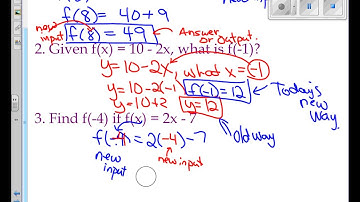 f(8) = 40 + 9
new input
f(8) = 49
Answer or output.
2. Given f(x) = 10 - 2x, what is f(-1)?
y = 10 - 2x, what x = -1
y = 10 - 2(-1)
f(-1) = 12
Today's new way.
y = 10 + 2
y = 12
3. Find f(-4) if f(x) = 2x - 7
Old way
f(-4) = 2(-4) - 7
new input
new input